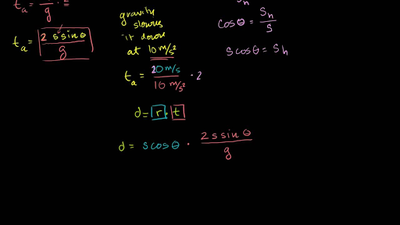 tₐ = — · =
g
tₐ = 2 s sinθ / g
gravity
slows
it down
at 10 m/s²
tₐ = 20 m/s / 10 m/s² · 2
d = r · t
d = s cosθ · 2 s sinθ / g
cosθ = Sₕ / S
s cosθ = Sₕ